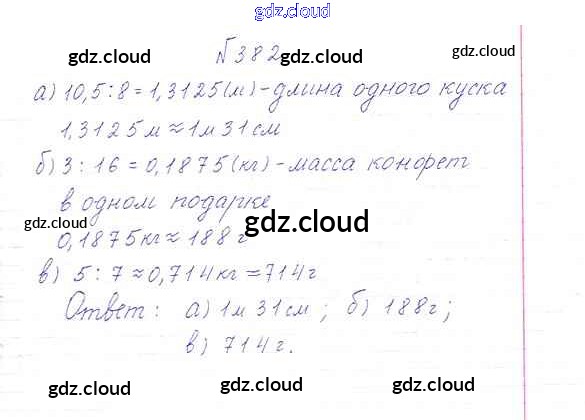 gdz.cloud
№382
gdz.cloud gdz.cloud gdz.cloud
а) 10,5:8=1,3125(м)-длина одного куска
1,3125м≈1м31см
б) 3:16=0,1875(кг)-масса конфет
в одном подарке
gdz.cloud gdz.cloud
0,1875кг≈188г
в) 5:7≈0,714кг=714г
Ответ: а) 1м 31см; б) 188г;
в) 714г.
gdz.cloud gdz.cloud